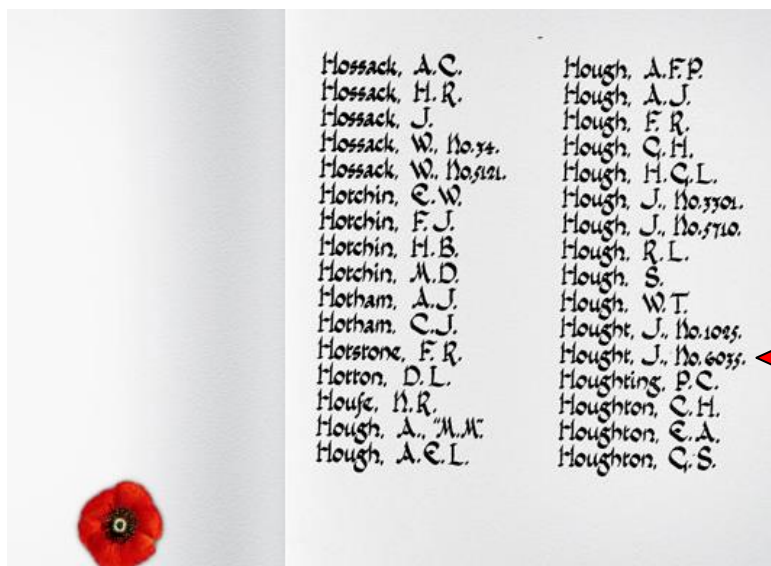 Hossack, A.C.
Hossack, H.R.
Hossack, J.
Hossack, W., No.34.
Hossack, W., No.5121.
Hotchin, E.W.
Hotchin, F.J.
Hotchin, H.B.
Hotchin, M.D.
Hotham, A.J.
Hotham, C.J.
Hotstone, F.R.
Hotton, D.L.
Houfe, N.R.
Hough, A., "M.M".
Hough, A.E.L.
Hough, A.F.P.
Hough, A.J.
Hough, F.R.
Hough, G.H.
Hough, H.G.L.
Hough, J., No.3301.
Hough, J., No.5710.
Hough, R.L.
Hough, S.
Hough, W.T.
Hought, J., No.1025.
Hought, J., No.6035.
Houghting, P.C.
Houghton, C.H.
Houghton, E.A.
Houghton, G.S.